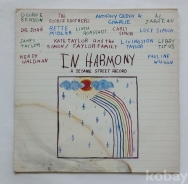 GEORGE BENSON
THE DOOBIE BROTHERS
ANTHONY GEARY & CHARLIE
AL JARREAU
DR. JOHN
BETTE MIDLER
LINDA RONSTADT
CARLY SIMON
LUCY SIMON
JAMES TAYLOR
KATE TAYLOR AND THE
SIMON/TAYLOR FAMILY
LIVINGSTON TAYLOR
LIBBY TITUS
WENDY WALDMAN
PAULINE WILSON
IN HARMONY
A SESAME STREET RECORD
kobay